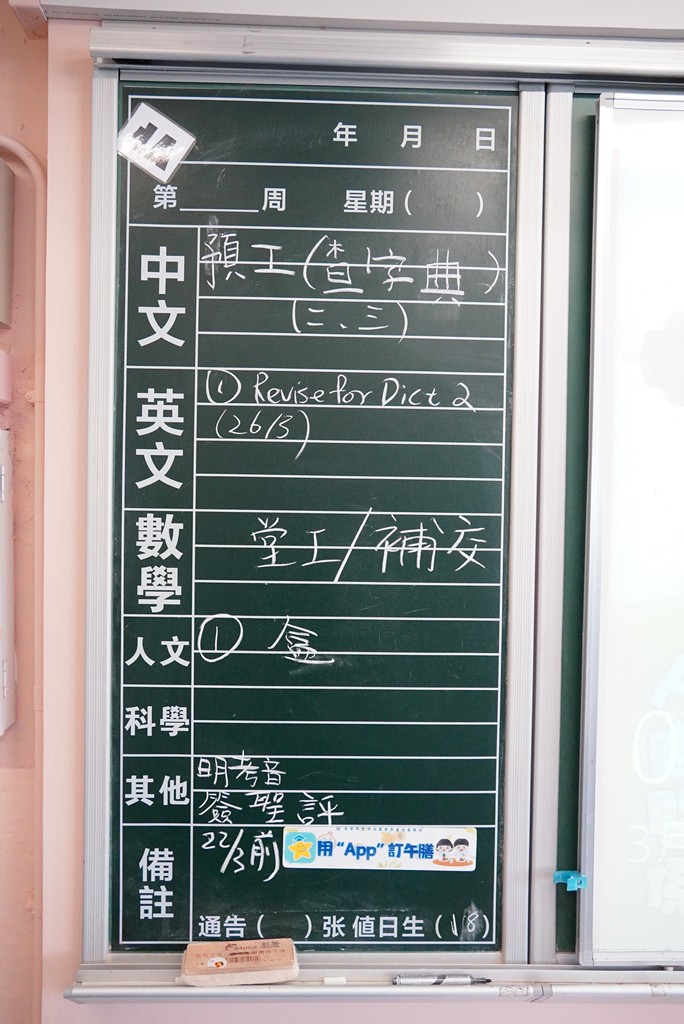 年 月 日
第 周 星期( )
中文 預工(查字典)
(二、三)
英文 ① Revise for Dict 2
(26/3)
數學 堂工/補交
人文 ① 盒
科學
其他 明考音
簽聖評
備註 22/3前 用 “App” 訂午膳
通告( )张 值日生(18)